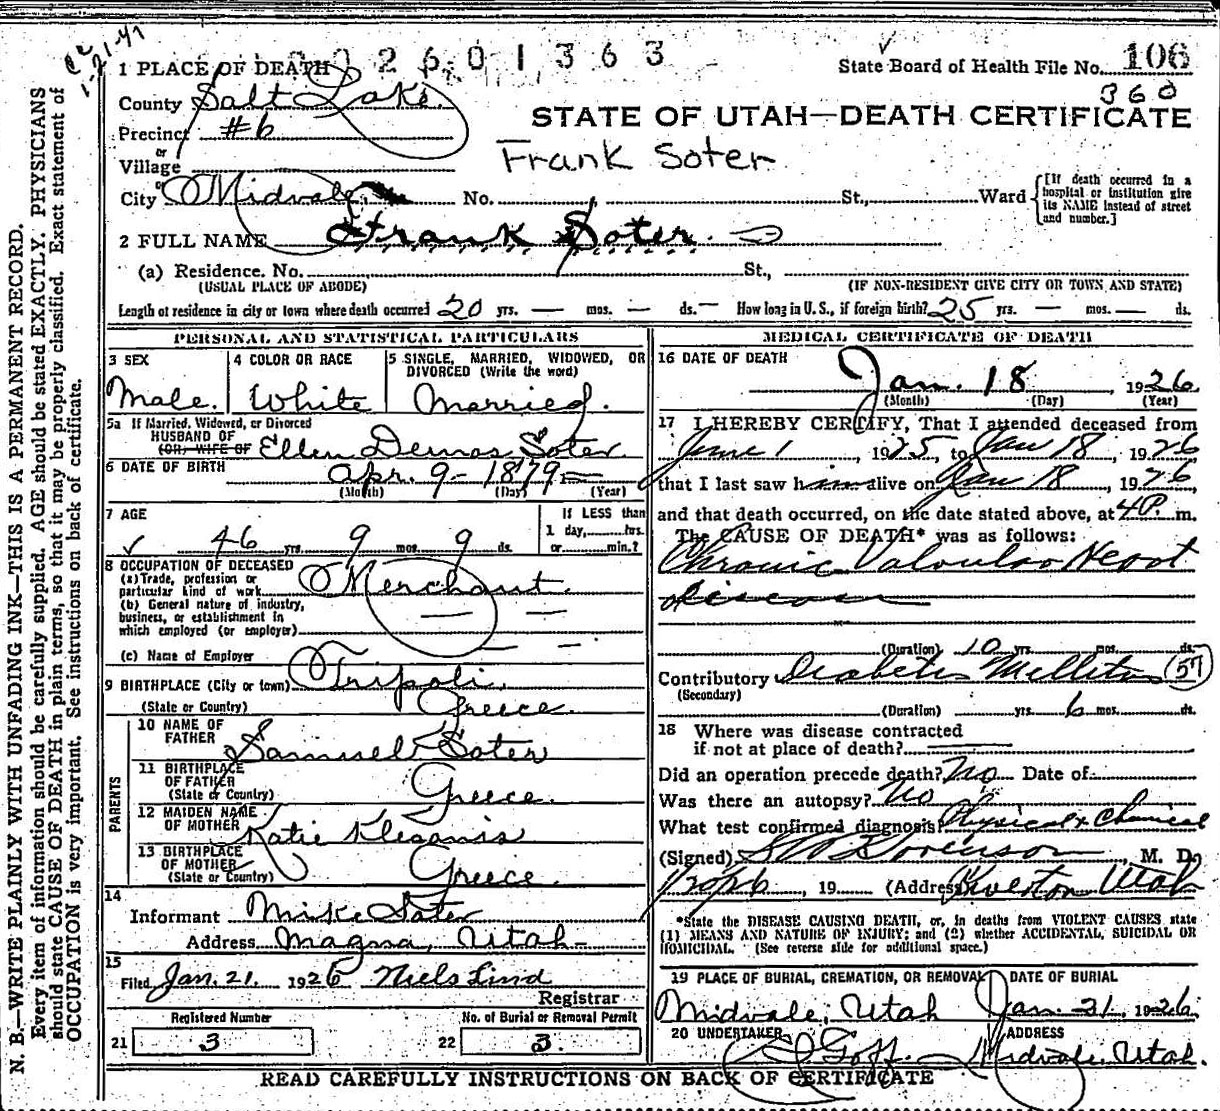 002601363
State Board of Health File No. 106
360
1 PLACE OF DEATH
County Salt Lake.
Precinct #6
or
Village
City Midvale No. St., Ward
[If death occurred in a hospital or institution give its NAME instead of street and number.]
STATE OF UTAH—DEATH CERTIFICATE
Frank Soter
2 FULL NAME Frank Soter.
(a) Residence. No. St.,
(USUAL PLACE OF ABODE) (IF NON-RESIDENT GIVE CITY OR TOWN AND STATE)
Length of residence in city or town where death occurred 20 yrs. — mos. — ds. — How long in U.S., if foreign birth? 25 yrs. — mos. — ds.
PERSONAL AND STATISTICAL PARTICULARS
3 SEX
Male.
4 COLOR OR RACE
White
5 SINGLE, MARRIED, WIDOWED, OR DIVORCED (Write the word)
Married.
5a If Married, Widowed, or Divorced
HUSBAND OF
(OR) WIFE OF Ellen Demas Soter
6 DATE OF BIRTH Apr. 9 - 1879
(Month) (Day) (Year)
7 AGE
46 yrs. 9 mos. 9 ds.
If LESS than
1 day, hrs.
or min.?
8 OCCUPATION OF DECEASED
(a) Trade, profession or
particular kind of work Merchant.
(b) General nature of industry,
business, or establishment in
which employed (or employer) — —
(c) Name of Employer — —
9 BIRTHPLACE (City or town) Tripoli.
(State or Country) Greece.
PARENTS
10 NAME OF
FATHER Samuel Soter
11 BIRTHPLACE
OF FATHER
(State or Country) Greece.
12 MAIDEN NAME
OF MOTHER Katie Klesanis
13 BIRTHPLACE
OF MOTHER
(State or Country) Greece.
14
Informant Mike Soter
Address Magna, Utah-
15
Filed Jan. 21. 1926 Niels Lind
Registrar
Registered Number
21 3
No. of Burial or Removal Permit
22 3.
MEDICAL CERTIFICATE OF DEATH
16 DATE OF DEATH
Jan. 18, 1926.
(Month) (Day) (Year)
17 I HEREBY CERTIFY, That I attended deceased from
June 1, 1925, to Jan 18, 1926
that I last saw him alive on Jan 18, 1926,
and that death occurred, on the date stated above, at 4P. m.
The CAUSE OF DEATH* was as follows:
Chronic Valvular Heart
disease
(Duration) 10 yrs. mos. ds.
Contributory Diabetes Mellitus (57)
(Secondary)
(Duration) yrs. 6 mos. ds.
18 Where was disease contracted
if not at place of death?
Did an operation precede death? No Date of
Was there an autopsy? No
What test confirmed diagnosis? Physical & Chemical
(Signed) Sorenson, M. D.
1/20/26, 19 (Address) Riverton Utah
*State the DISEASE CAUSING DEATH, or, in deaths from VIOLENT CAUSES state
(1) MEANS AND NATURE OF INJURY; and (2) whether ACCIDENTAL, SUICIDAL OR
HOMICIDAL. (See reverse side for additional space.)
19 PLACE OF BURIAL, CREMATION, OR REMOVAL DATE OF BURIAL
Midvale, Utah Jan. 21, 1926.
20 UNDERTAKER ADDRESS
Goff. Midvale, Utah.
READ CAREFULLY INSTRUCTIONS ON BACK OF CERTIFICATE
N. B.—WRITE PLAINLY WITH UNFADING INK—THIS IS A PERMANENT RECORD.
Every item of information should be carefully supplied. AGE should be stated EXACTLY. PHYSICIANS
should state CAUSE OF DEATH in plain terms, so that it may be properly classified. Exact statement of
OCCUPATION is very important. See instructions on back of certificate.
1-21-47